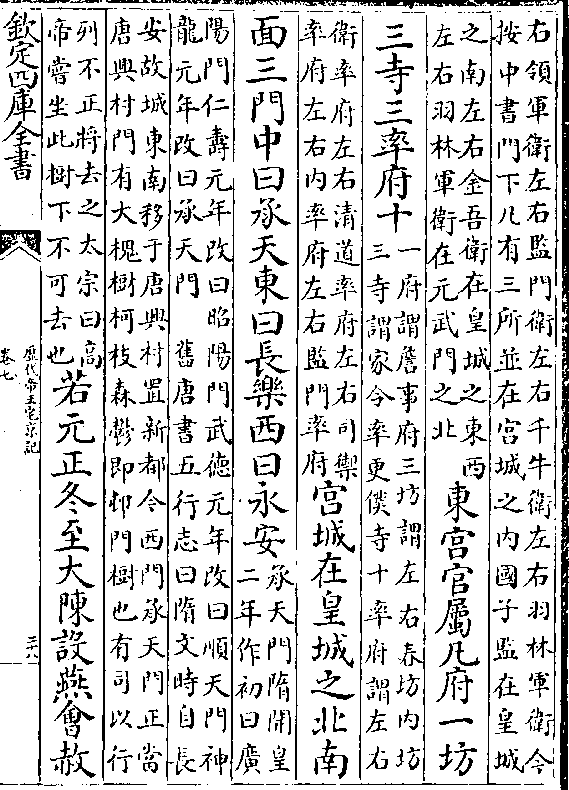 右領軍衛左右監門衛左右千牛衛左右羽林軍衛今
按中書門下凡有三所並在宮城之内國子監在皇城
之南左右金吾衛在皇城之東西
左右羽林軍衛在元武門之北
東宮官屬凡府一坊
三寺三率府十
一府謂詹事府三坊謂左右春坊内坊
三寺謂家令率更僕寺十率府謂左右
衛率府左右清道率府左右司禦
率府左右内率府左右監門率府
宮城在皇城之北南
面三門中曰承天東曰長樂西曰永安
承天門隋開皇
二年作初曰廣
陽門仁壽元年改曰昭陽門武德元年改曰順天門神
龍元年改曰承天門 舊唐書五行志曰隋文時自長
安故城東南移于唐興村置新都今西門承天門正當
唐興村門有大槐樹柯枝森鬱即邨門樹也有司以行
列不正將去之太宗曰高
帝嘗坐此樹下不可去也
若元正冬至大陳設燕會赦
欽定四庫全書
歷代帝王宅京記
卷七
三十八